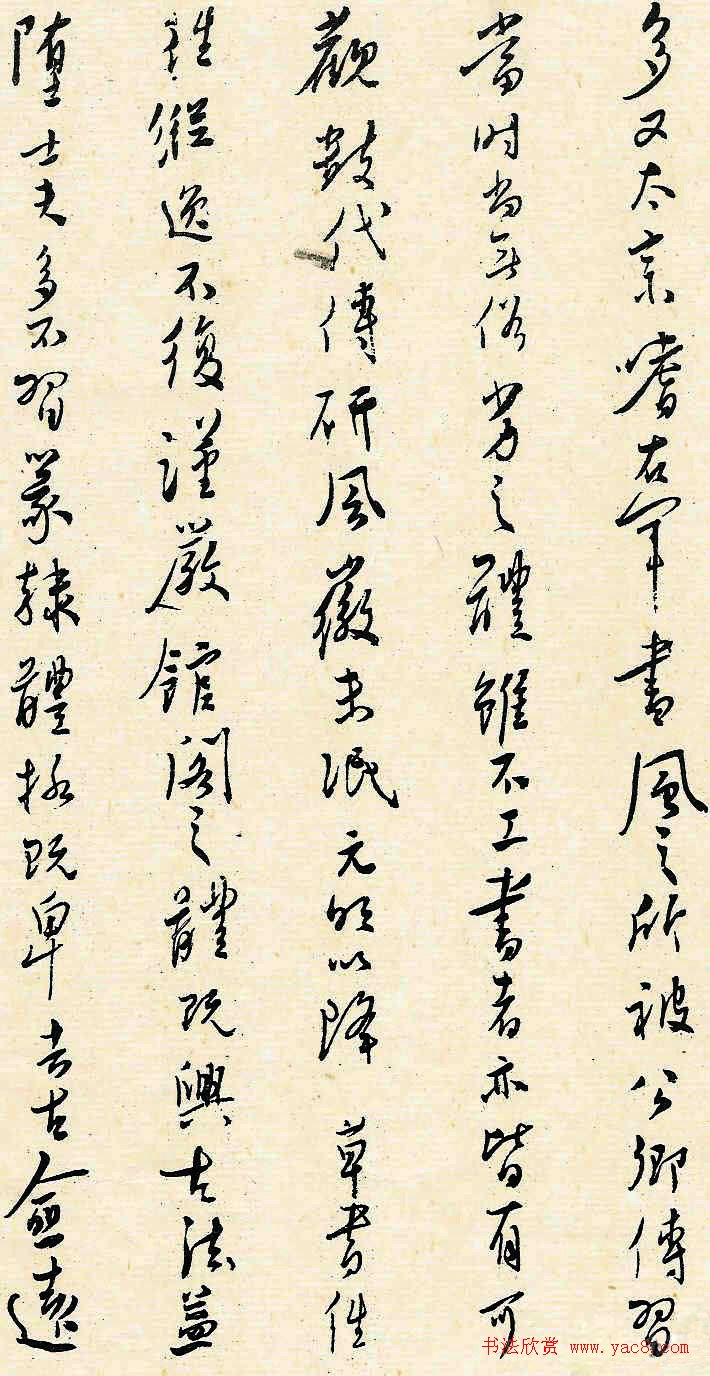 多又太宗嗜右軍書風之所被公卿傳習
當時尚無俗劣之體雖不工書者亦皆有可
觀數代傳研風徽未泯元明以降草書往
往縱逸不復謹嚴館閣之體既興古法益
墮士夫多不習篆隸體格既卑去古愈遠
书法欣赏 www.yac8.com